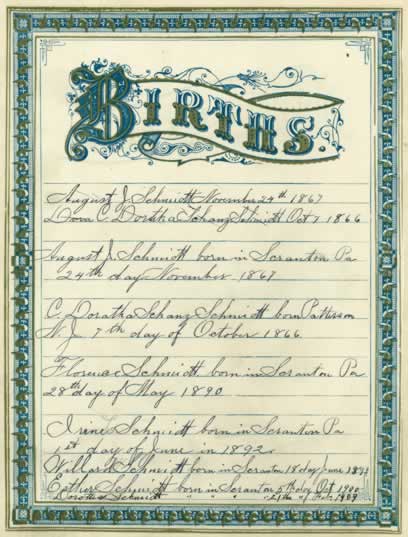 BIRTHS.
August J. Schmidt November 24th 1867
Dora C. Doratha Schanz Schmidt Oct 7 1866
August J. Schmidt born in Scranton Pa
24th day November 1867
C. Doratha Schanz Schmidt born Patterson
N.J. 7th day of October 1866.
Florence Schmidt born in Scranton Pa
28th day of May 1890
Irene Schmidt born in Scranton Pa
1st day of June in 1892.
Willard Schmidt born in Scranton 18 day June
Esther Schmidt born in Scranton 5th day Oct 1900
Dorothea Schmidt " " " of Feb. 1909